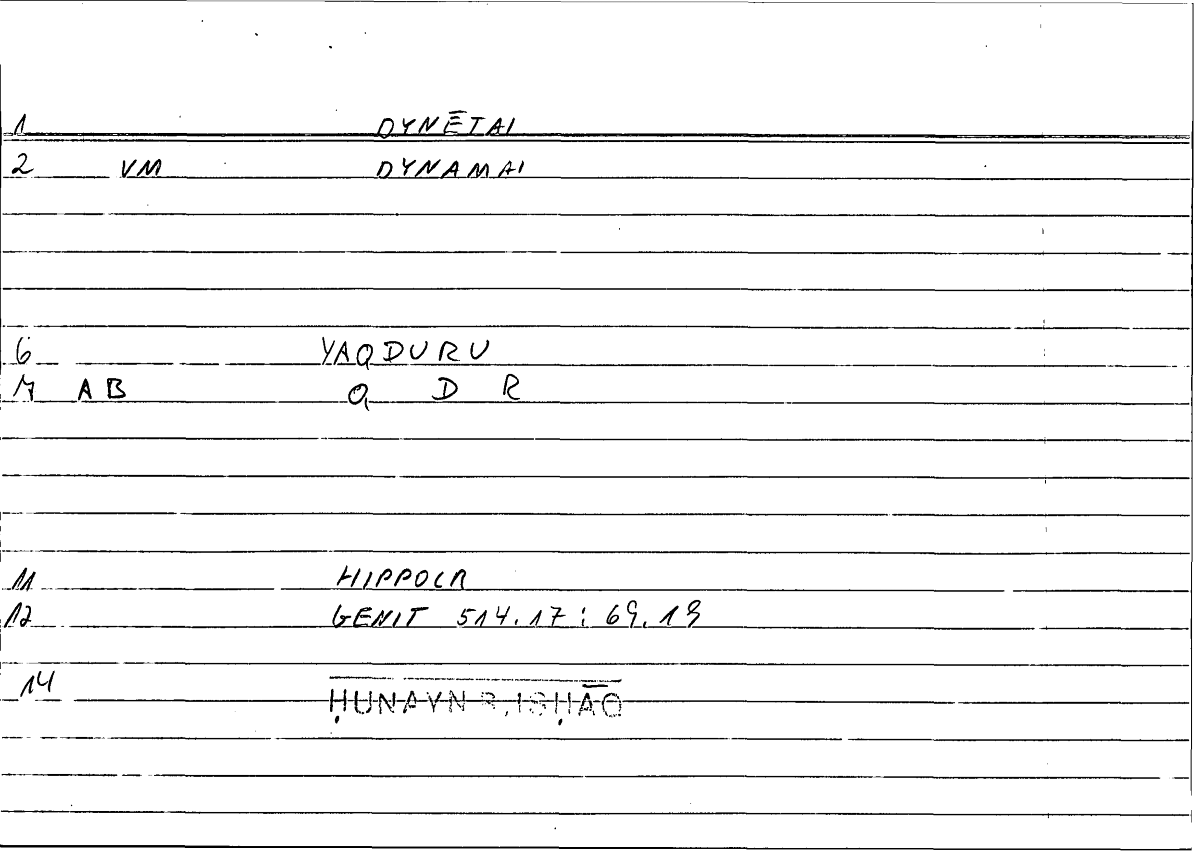 1 DYNĒTAI
2 VM DYNAMAI
6 YAQDURU
7 AB Q D R
11 HIPPOCR
12 GENIT 514.17 ; 69.19
14 ḤUNAYN B. ISḤĀQ